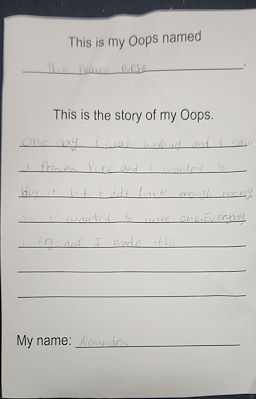 This is my Oops named
The Princess Purse
This is the story of my Oops.
One day i was walking and i saw
a Princess Purs and i wanted to
buy it but i ddt have enough mony
So i wanted to make one. Everyday
i try and I made it!
My name: Alexandra